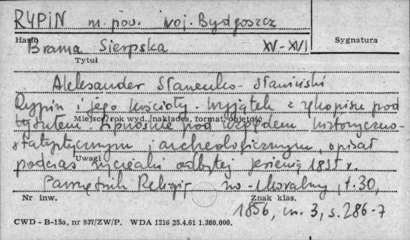 RYPIN m. pow. woj. Bydgoszcz
Hasło
Brama Sierpska XV-XVI
Sygnatura
Tytuł
Aleksander Stanenko-Staniński
Rypin i jego kościoły. Wyjątek z rękopisu pod
Miejsce i rok wyd., nakładca, format, objętość
tytułem: Lipnoskie pod względem historyczno-
statystycznym i archeologicznym, opisał
Uwagi
podczas wycieczki odbytej jesienią 1855 r.
Pamiętnik Religijno-Moralny, t. 30,
Nr inw.
Znak klas.
1856, nr. 3, s. 286-7
CWD - B-15a, nr 937/ZW/P. WDA 1216 25.4.61 1.380.000.